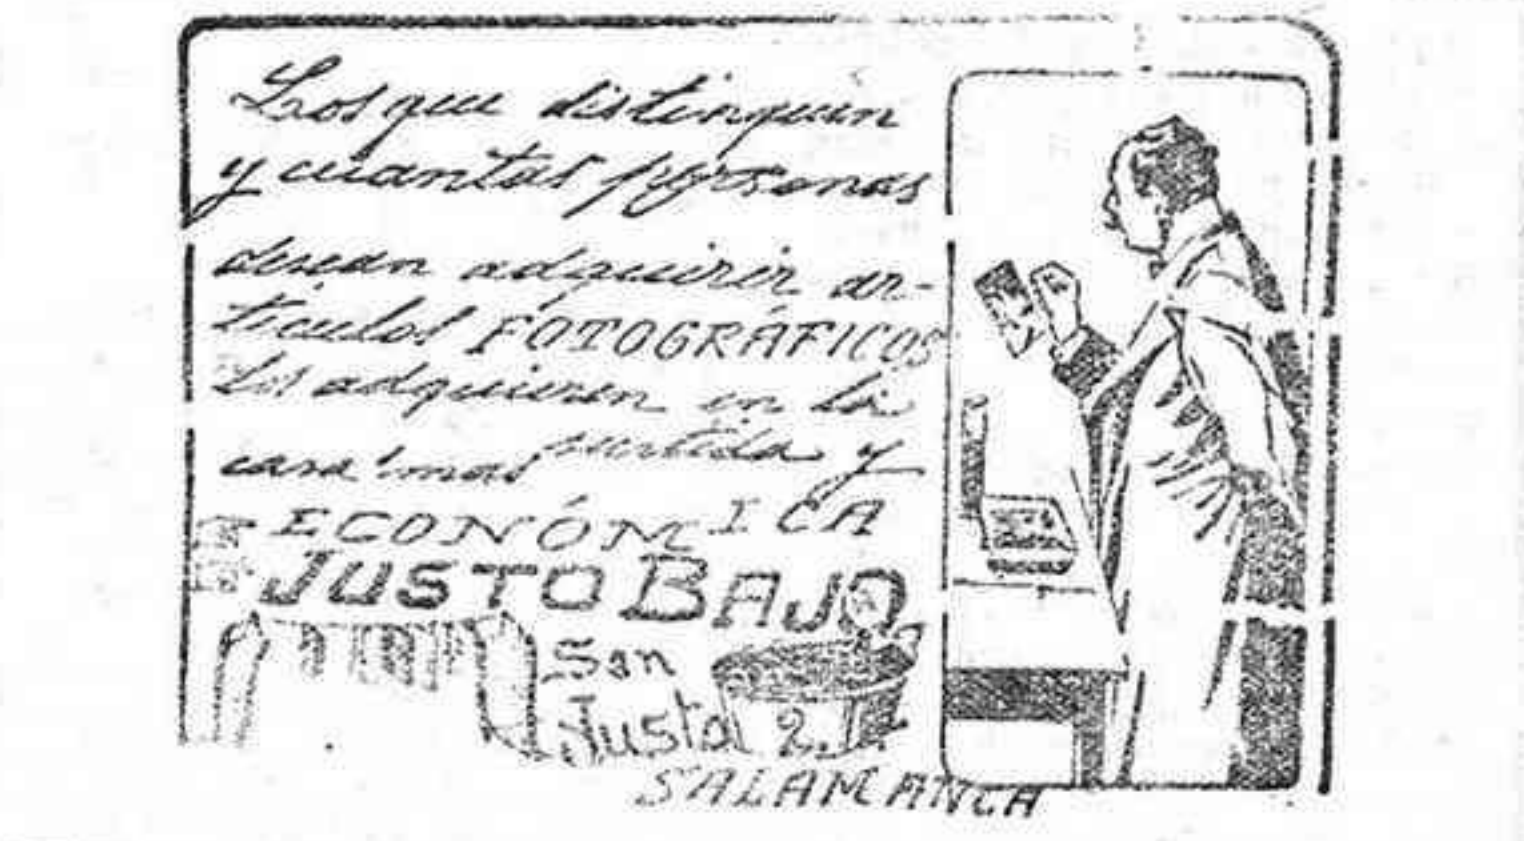 Los que distinguen
y cuantas personas
desean adquirir ar-
tículos FOTOGRÁFICOS
los adquieren en la
casa mas surtida y
ECONÓMICA
JUSTO BAJO
San
Justo 2.
SALAMANCA